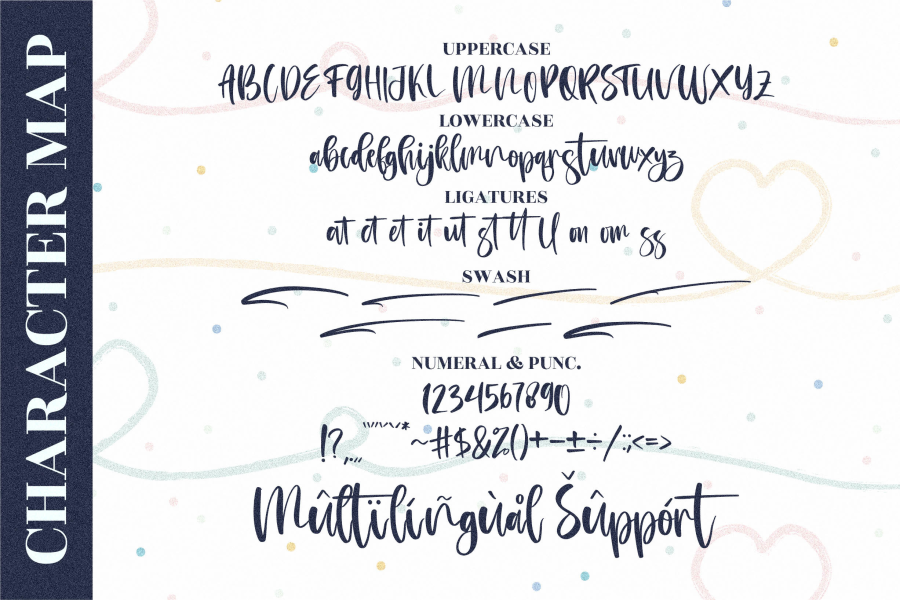 CHARACTER MAP
UPPERCASE
ABCDEFGHIJKLMNOPQRSTUVWXYZ
LOWERCASE
abcdefghijklmnopqrstuvwxyz
LIGATURES
at ct et it ut st tt ll on om ss
SWASH
NUMERAL & PUNC.
1234567890
~#$&%()+−±÷/:;<=>
Mûltïlíñgùål Šûppórt